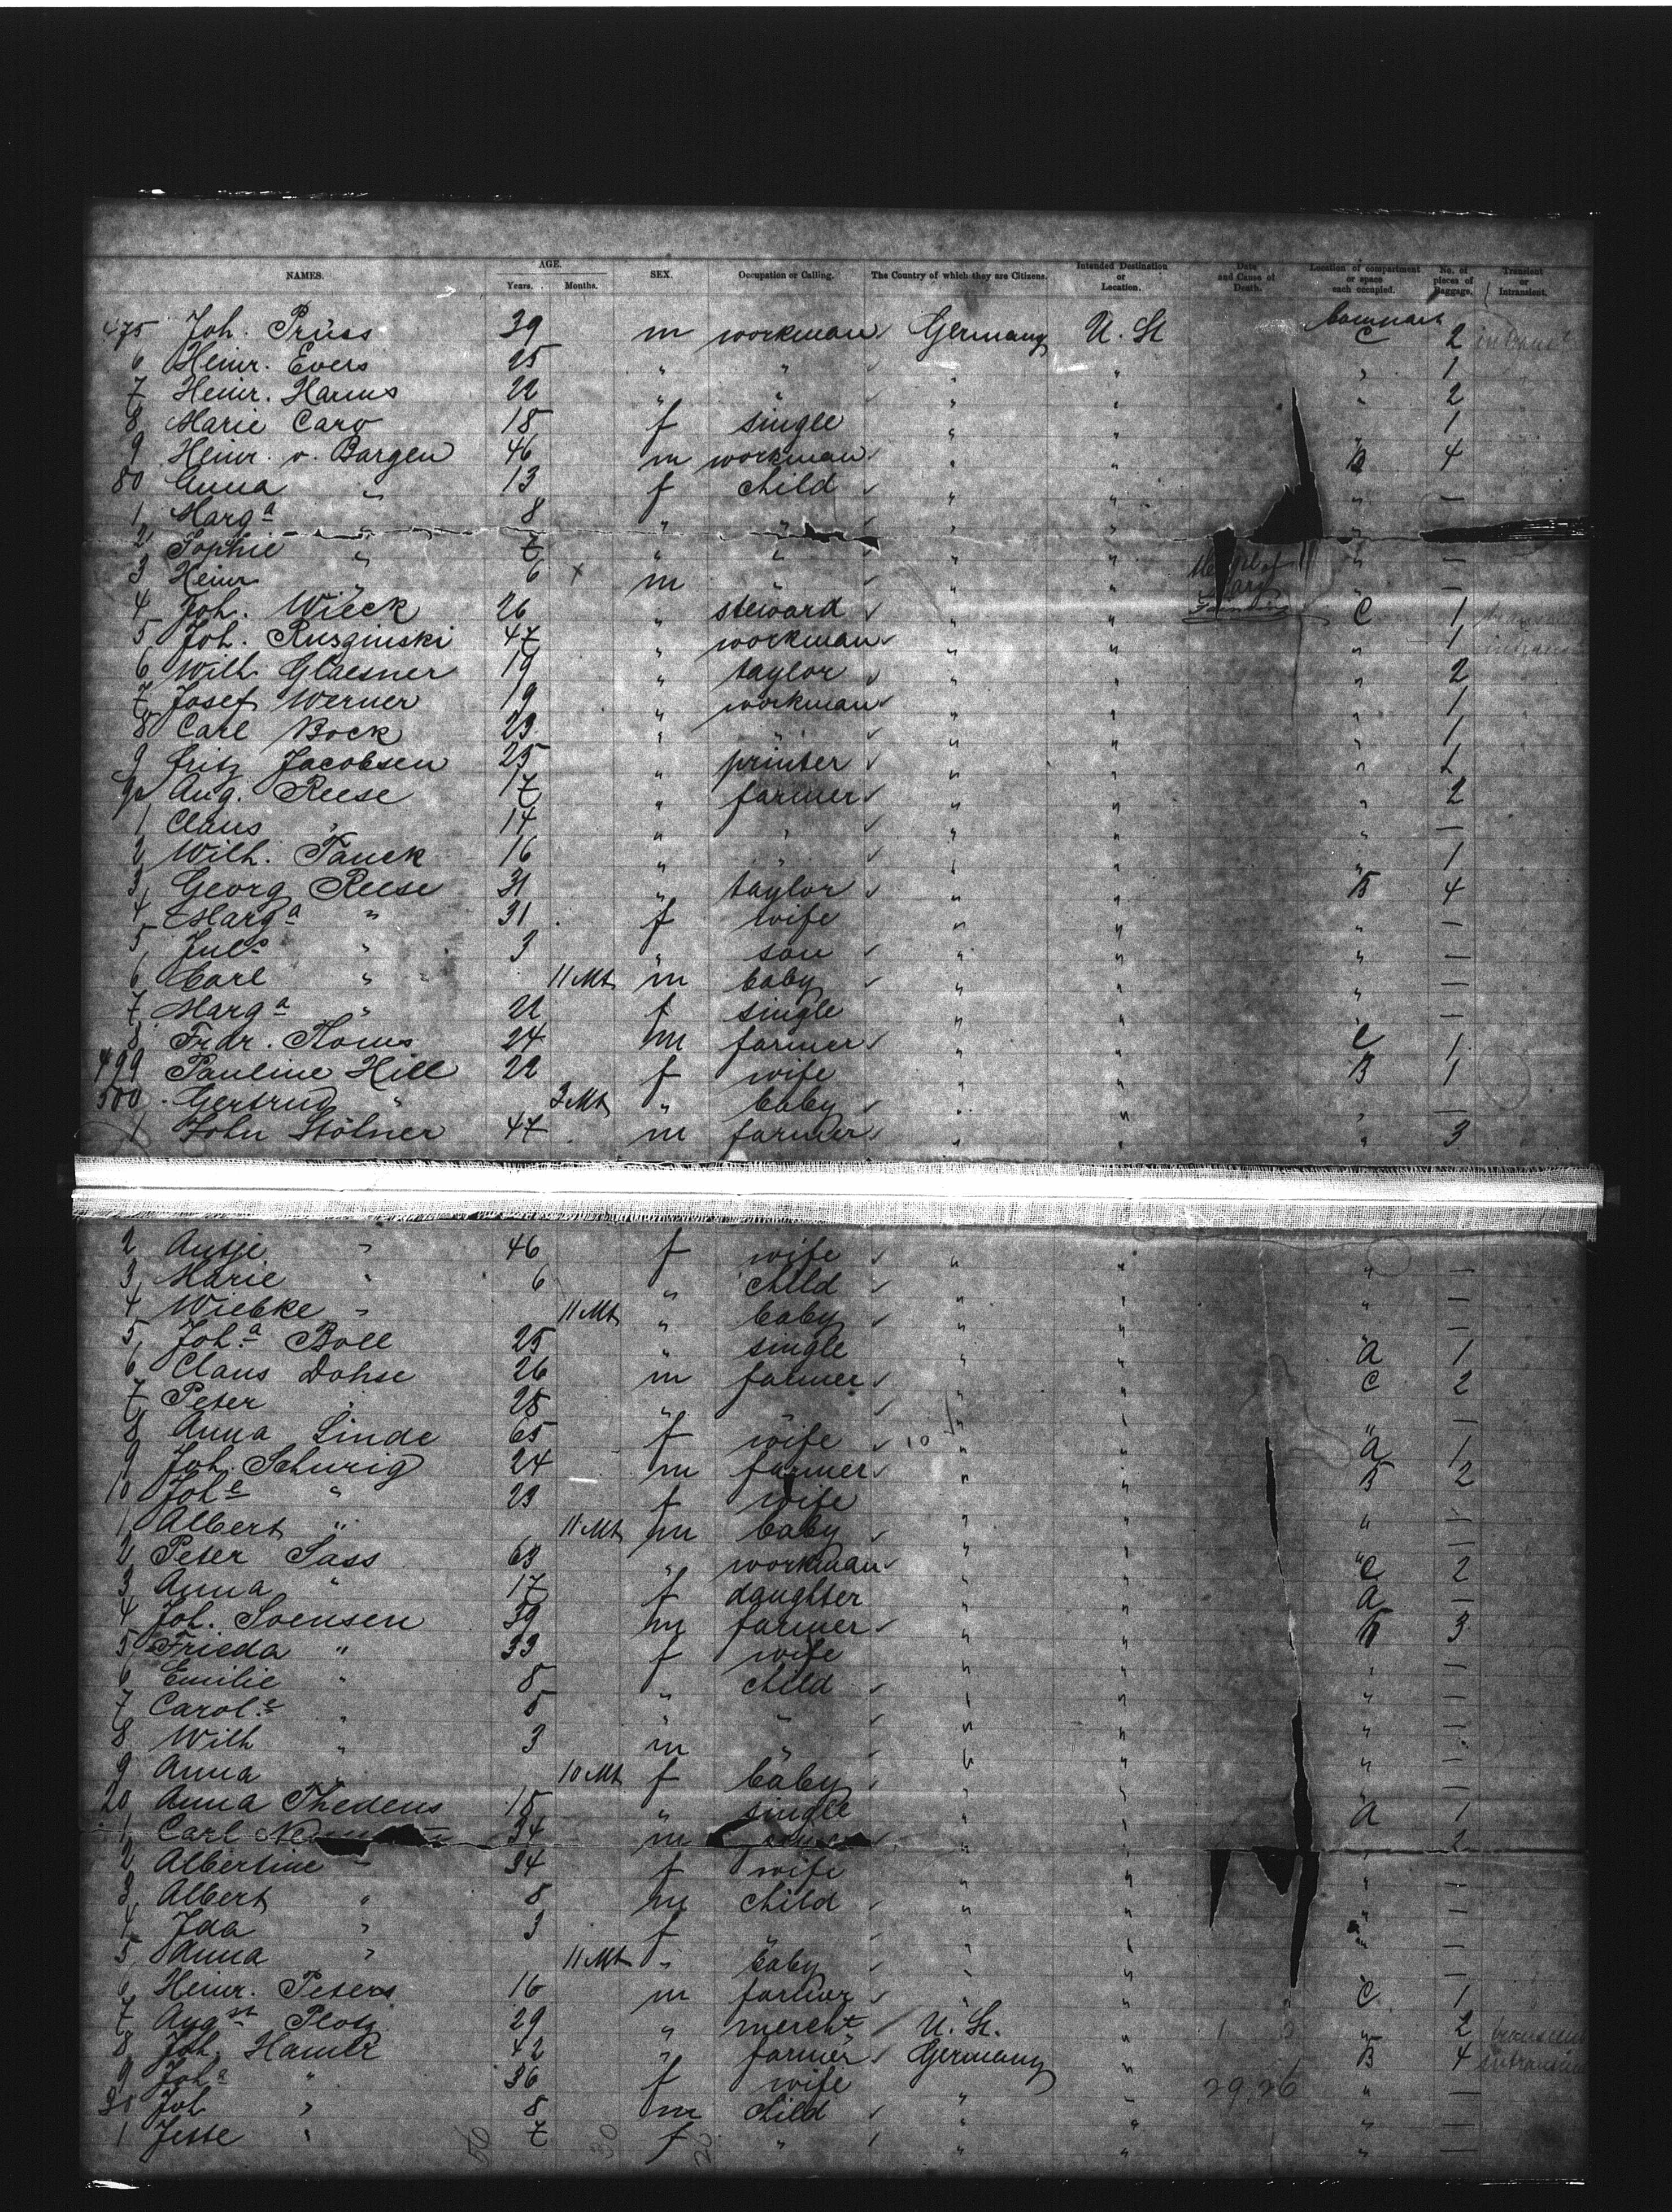 NAMES. AGE. Years. Months. SEX. Occupation or Calling. The Country of which they are Citizens. Intended Destination or Location. Date and Cause of Death. Location of compartment or space each occupied. No. of pieces of Baggage. Transient or Intransient.
475 Joh. Prüss 39 m workman Germany U. St C 2
6 Heinr. Evers 25 " " " " " 1
7 Heinr. Harms 22 " " " " " 2
8 Marie Caro 18 f single " " 1
9 Heinr. v. Bargen 46 m workman " " B 4
80 Anna " 13 f child " " " —
1 Marga " 8 " " " " "
2 Sophie " 7 " " " " " —
3 Heinr " 6 x m " " " " —
4 Joh. Wieck 26 " steward " " C 1
5 Joh. Rusginski 47 " workman " " " 1
6 Wilh Glaesner 19 " taylor " " " 2
7 Josef Werner 19 " workman " " " 1
8 Carl Bock 23 " " " " " 1
9 Fritz Jacobsen 25 " printer " " " 1
90 Aug. Reese 17 " farmer " " " 2
1 Claus " 14 " " " " " —
2 Wilh. Tanck 16 " " " " " 1
3 Georg Reese 31 " taylor " " B 4
4 Marga " 31 f wife " " " —
5 Juls " 3 " son " " " —
6 Carl " 11 Mt m baby " " " —
7 Marga " 22 f single " " " —
8 Frdr. Thoms 24 m farmer " " C 1
499 Pauline Hill 22 f wife " " B 1
500 Gertrud " 3 Mt " baby " " " —
1 John Stölner 47 m farmer " " " 3
2 Antje " 46 f wife " " " —
3 Marie " 6 " child " " " —
4 Wiebke " 11 Mt " baby " " " —
5 Joha Boll 25 " single " " A 1
6 Claus Dohse 26 m farmer " " C 2
7 Peter " 28 " " " " " —
8 Anna Linde 65 f wife " " A 1
9 Joh. Schurig 24 m farmer " " B 2
10 Johe " 23 f wife " " " —
1 Albert " 11 Mt m baby " " " —
2 Peter Sass 63 " workman " " C 2
3 Anna " 17 f daughter " " A —
4 Joh. Svensen 39 m farmer " " B 3
5 Frieda " 33 f wife " " " —
6 Emilie " 8 " child " " " —
7 Carole " 5 " " " " " —
8 Wilh " 3 m " " " " —
9 Anna " 10 Mt f baby " " " —
20 Anna Thedens 18 " single " " A 1
1 Carl 34 m " " 2
2 Albertine " 34 f wife " " " —
3 Albert " 8 m child " " " —
4 Ida " 3 f " " " " —
5 Anna " 11 Mt " baby " " —
6 Heinr. Peters 16 m farmer " " C 1
7 Augst Plotz 29 " mercht U. St. " " 2
8 Joh. Hamer 42 " farmer Germany " B 4
9 Joha " 36 f wife " " 29,26 " —
30 Joh " 8 m child " " " —
1 Jesse " 7 f " " " " —